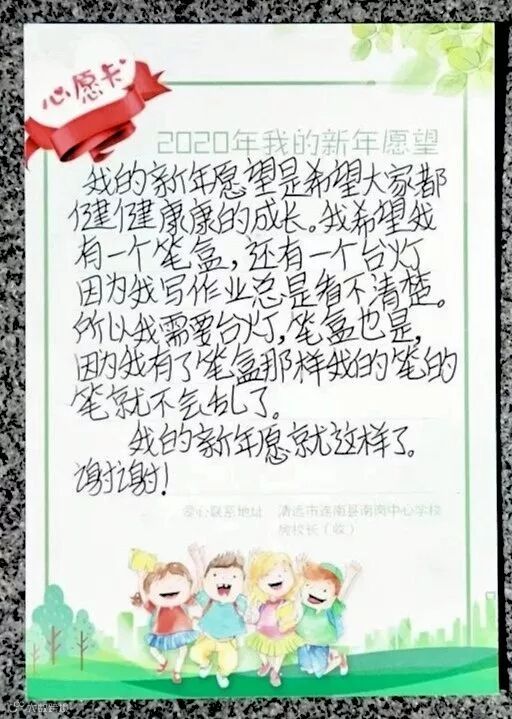 心愿卡
2020年我的新年愿望
我的新年愿望是希望大家都
健健康康的成长。我希望我
有一个笔盒,还有一个台灯
因为我写作业总是看不清楚。
所以我需要台灯,笔盒也是,
因为我有了笔盒那样我的笔的
笔就不会乱了。
我的新年愿就这样了。
谢谢!
爱心联系地址 清远市连南县南岗中心学校
校长(收)